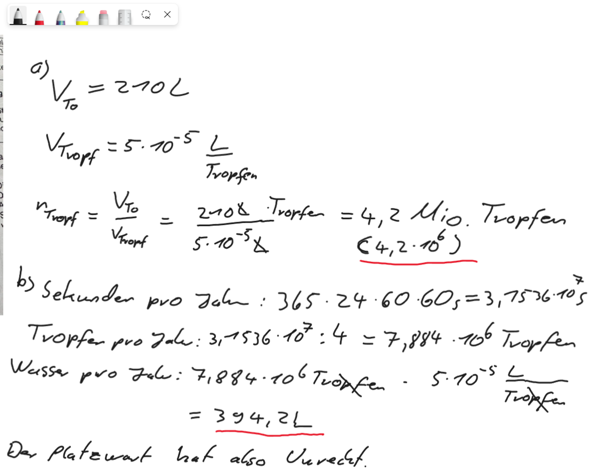 a)
V_To = 210L
V_Tropf = 5·10⁻⁵ L/Tropfen
n_Tropf = V_To/V_Tropf = 210L·Tropfen/5·10⁻⁵L = 4,2 Mio. Tropfen
(4,2·10⁶)
b) Sekunden pro Jahr: 365·24·60·60s = 3,1536·10⁷s
Tropfen pro Jahr: 3,1536·10⁷:4 = 7,884·10⁶ Tropfen
Wasser pro Jahr: 7,884·10⁶ Tropfen · 5·10⁻⁵ L/Tropfen
= 394,2L
Der Platzwart hat also Unrecht.